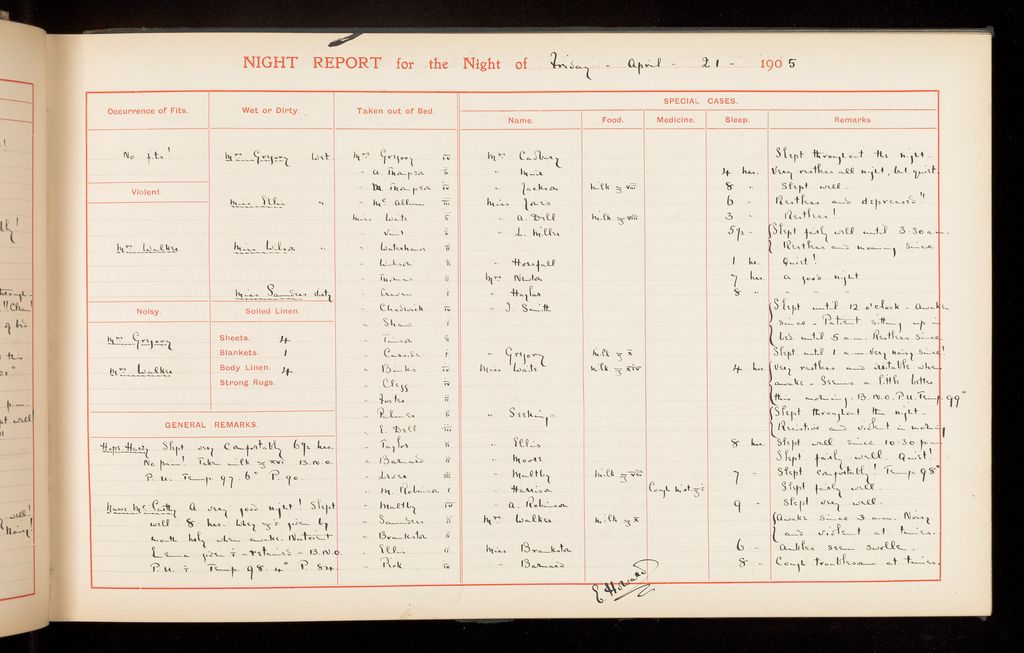 NIGHT REPORT for the Night of Friday - April - 21 - 1905
Occurrence of Fits.
No fits!
Violent.
Mrs Walker
Noisy.
Mrs Gregory
Mrs Walker
Wet or Dirty.
Mrs Gregory Wet
Miss Ellis "
Miss Wilson "
Miss Saunders dirty
Soiled Linen.
Sheets. 4
Blankets. 1
Body Linen. 4
Strong Rugs.
GENERAL REMARKS.
Slept very Comfortably 6½ hrs.
No pain! Taken milk ℥xvi B.N.O.
P.U. Temp. 97.6° P. 90.
A very good night! Slept
well 8 hrs. given by
mouth when awake. Nutrient
Enema given ⅰ - retained - B.N.O.
P.U. ⅰ Temp. 98.4° P. 84.
Taken out of Bed.
Mrs Gregory iv
" A. Thompson ii
" M. Thompson iv
" McAllum iii
Miss Waite ii
" Waterhouse ii
" Wilson ii
" Thomas ii
" Craven i
" Chadwick iv
" Shaw i
"
"
" Binks iv
" Clegg iii
" Foster ii
" Palmer ii
" E. Dell iii
" Taylor ii
" Barnard ii
"
" M. Robinson i
" Maltby iv
" Saunders ii
" Brankston ii
" Ellis ii
" Peck iv
SPECIAL CASES.
Name. Food. Medicine. Sleep. Remarks.
Mrs Cadbury Slept throughout the night.
" Muir 4 hrs. Very restless all night, but quiet.
" Jackson milk ℥viii 8 " Slept well.
Miss 6 " Restless and depressed"
" A. Dell milk ℥viii 3 " Restless!
" L. Miller 5½ " Slept fairly well until 3.30 a.m.
Restless and moaning since
" Horsfall 1 hr. Quiet!
Mrs Newton 7 hrs. A good night
" Haylor 8 " " " "
" J. Smith Slept until 12 o'clock - Awake
since - Patient sitting up in
bed until 5 a.m. Restless since
" Gregory milk ℥x Slept until 1 a.m. Very noisy since!
Miss Waite milk ℥xiv 4 hrs. Very restless and irritable when
awake - Seems a little better
this morning. B.N.O. P.U. Temp 99°
" Slept throughout the night -
Resistive and violent in morning
" Ellis 8 hrs. Slept well since 10.30 p.m.
" Moore Slept fairly well. Quiet!
" Maltby milk ℥viii 7 " Slept comfortably! Temp. 98°
" Harrison Cough Mist ℥i Slept fairly well.
" A. Robinson 9 " Slept very well.
Mrs Walker milk ℥x Awake since 3 a.m. Noisy
and violent at times.
Miss Brankston 6 " Ankles seem swollen.
" Barnard 8 " Cough troublesome at times.
E. Howard